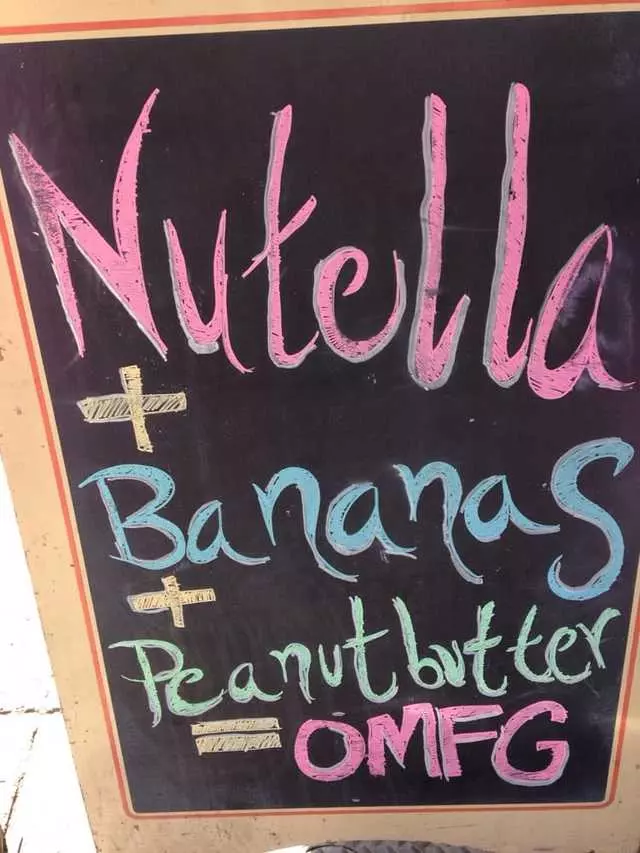 Nutella
+
Bananas
+
Peanutbutter
= OMFG